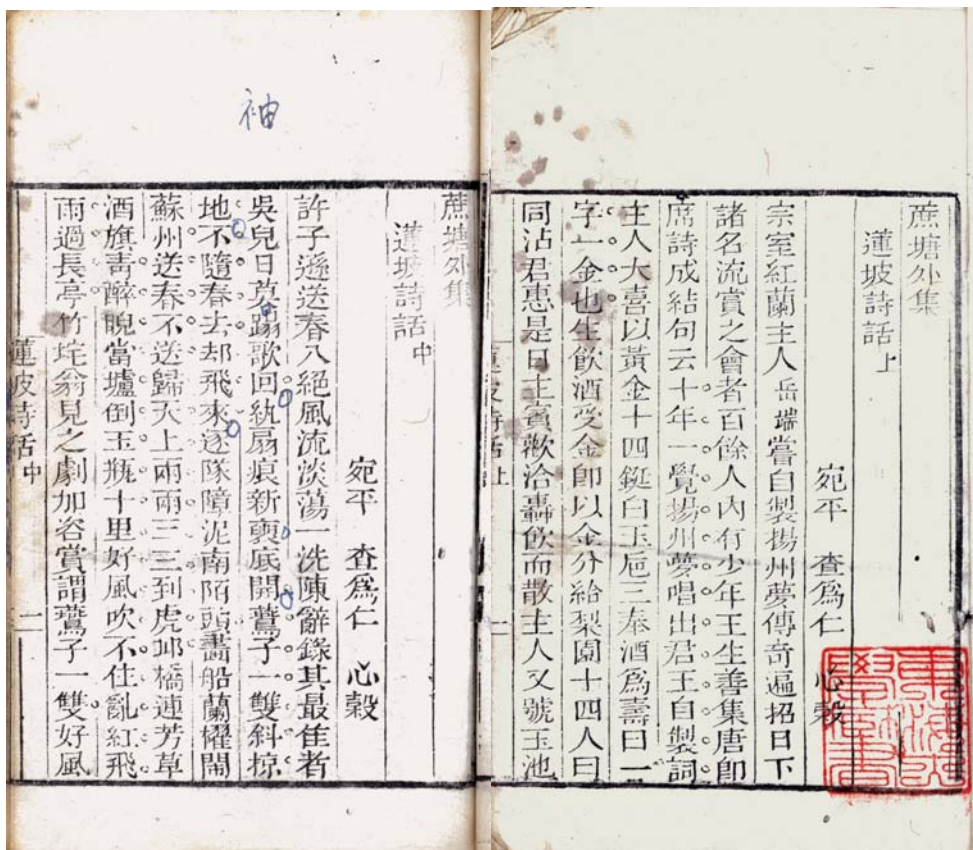 蔗塘外集
蓮坡詩話上
宛平 查爲仁 心穀
宗室紅蘭主人岳端嘗自製揚州夢傳奇遍招日下
諸名流賞之會者百餘人內有少年王生善集唐卽
席詩成結句云十年一覺揚州夢唱出君王自製詞
主人大喜以黃金十四鋌白玉巵三奉酒爲壽曰一
字一金也生飲酒受金卽以金分給梨園十四人曰
同沾君惠是日主賓歡洽轟飲而散主人又號玉池
蓮坡詩話上
一
袖
蔗塘外集
蓮坡詩話中
宛平 查爲仁 心穀
許子遜送春八絕風流淡蕩一洗陳辭錄其最佳者
吳兒日莫蹋歌回紈扇痕新
底開鷰子一雙斜掠
地不隨春去却飛來逐隊障泥南陌頭畵船蘭櫂閙
蘇州送春不送歸天上兩兩三三到虎邱橋連芳草
酒旗靑醉睨當壚倒玉甁十里好風吹不住亂紅飛
雨過長亭竹垞翁見之劇加咨賞謂鷰子一雙好風
蓮坡詩話中
一